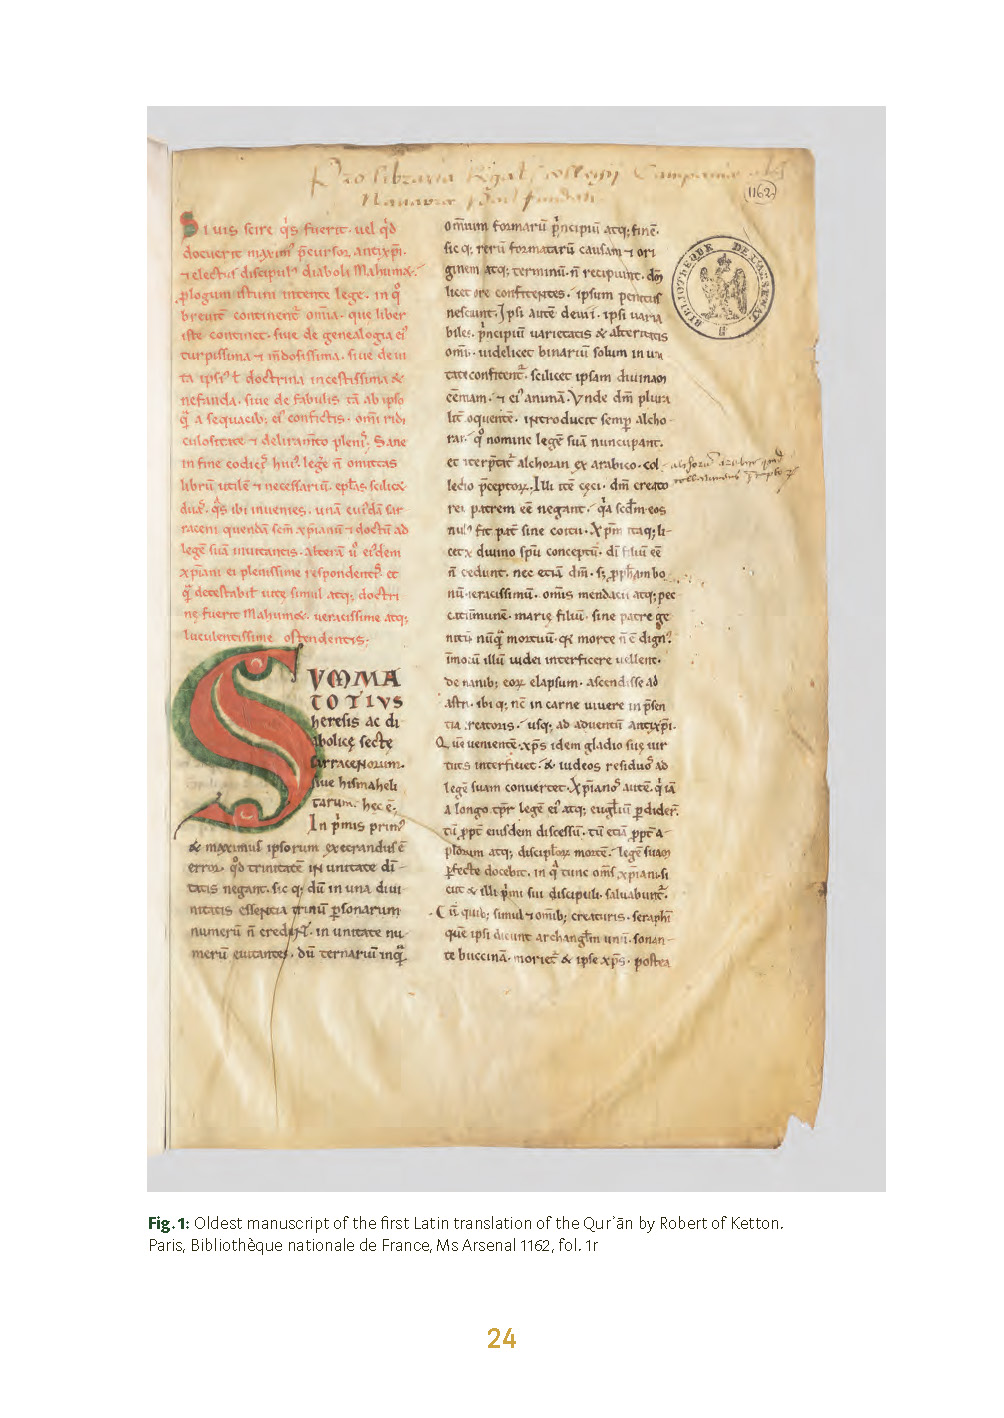 Pro libraria Regal collegij Campaniae als
Navarrae
1162.
BIBLIOTHEQUE DE L'ARSENAL
SI uis scire q̇s fuerit. uel q̇d
docuerit maxim⁹ p̄cursor antixp̄i.
⁊ electus discipul⁹ diaboli Mahumet.
plogum istum intente lege. in q°
breuit᷑ continent᷑ om̄ia. que liber
iste continet. siue de genealogia ei⁹
turpissima ⁊ doctrina incestissima &
nefanda. siue de fabulis tā ab ipso
q̄ a sequacib; ei⁹ confictis. om̄i ridi
culositate ⁊ deliramto pleni⁹. Sane
in fine codic̨ hui⁹ legē n̄ omittas
librū utilē ⁊ necessariū. ep̄las scilicꝫ
duas. q̄s ibi inuenies. unā cui⁹dā sar
raceni quendā xp̄ianū ⁊ doctū ad
legē suā inuitantis. alterā ū ei⁹dem
xp̄iani ei plenissime respondentis. et
q̄ detestabit uite simul atq; doctri
nę fuerit Mahumet. ueracissime atq;
luculentissime ostendentis.
SVMMA
TOTIVS
heresis ac di
abolicę sectę
sarracenorum.
siue hismaheli
tarum. hec ē.
In p̄mis prim⁹
& maximus ipsorum execrandus ē
error. qd̄ trinitatē in unitate di-
tatis negant. sic q; dū in una diui
nitatis essentia trinū psonarum
numerū n̄ credunt. in unitate nu
merū euitantes. dū ternariū inq̄
om̄ium formarū p̄ncipiū atq; finē.
sic q; rerū formatarū causam ⁊ ori
ginem atq; terminū. n̄ recipiunt. dm̄
licet ore confitentes. ipsum penitus
nesciunt. Ipsi autē deuii. ipsi uaria
biles. p̄ncipiū uarietatis & alteritatis
om̄i. uidelicet binariū solum in uni
tate confitent᷑. scilicet ipsam diuinam
ēentiam. ⁊ ei⁹ animā. Vnde dm̄ plura
lit᷑ loquentē. introducit semp alcho
ran. q° nomine legē suā nuncupant.
et iterp̄tat᷑ alchoran ex arabico. col
lectio p̄ceptoꝝ. Illi itē cęci. dm̄ creato
rē. patrem eē negant. q̄a scdm eos
null⁹ fit pat᷑ sine coitu. Xp̄m itaq; li-
cet ex diuino sp̄u conceptū. di filiū eē
n̄ credunt. nec etiā dm̄. sꝫ pph̄am bo
nū. ueracissimū. om̄is mendacii atq; pec
cati imunē. marię filiū. sine patre ge
nitū. nūq̄ mortuū. qr morte n̄ ē dign⁹.
imo cū illū iudei interficere uellent.
de manib; eoꝝ elapsum. ascendisse ad
astra. ibi q; nc̄ in carne uiuere in p̄sen
tia creatoris. usq; ad aduentū antixp̄i.
Quē uenientē. xp̄s idem gladio suę uir
tutis interficiet. & iudeos residuos ad
legē suam conuertet. Xp̄ianos autē. q̄ iā
a longo tp̄r legē ei⁹ atq; eugl̄iū pdider̄.
tū ppt᷑ eiusdem discessū. tū etiā ppt᷑ a-
plorum atq; discipuloꝝ mortē. legē suam
pfecte docebit. in q̄ tunc om̄s xp̄iani. si
cut & illi p̄mi sui discipuli. saluabunt᷑.
Cū quib; simul ⁊ om̄ib; creaturis. seraphī
quē ipsi dicunt archang̃lm unū. sonan-
te buccinā. moriet᷑ & ipse xp̄s. postea
Fig.1: Oldest manuscript of the first Latin translation of the Qurʾān by Robert of Ketton.
Paris, Bibliothèque nationale de France, Ms Arsenal 1162, fol. 1r
24